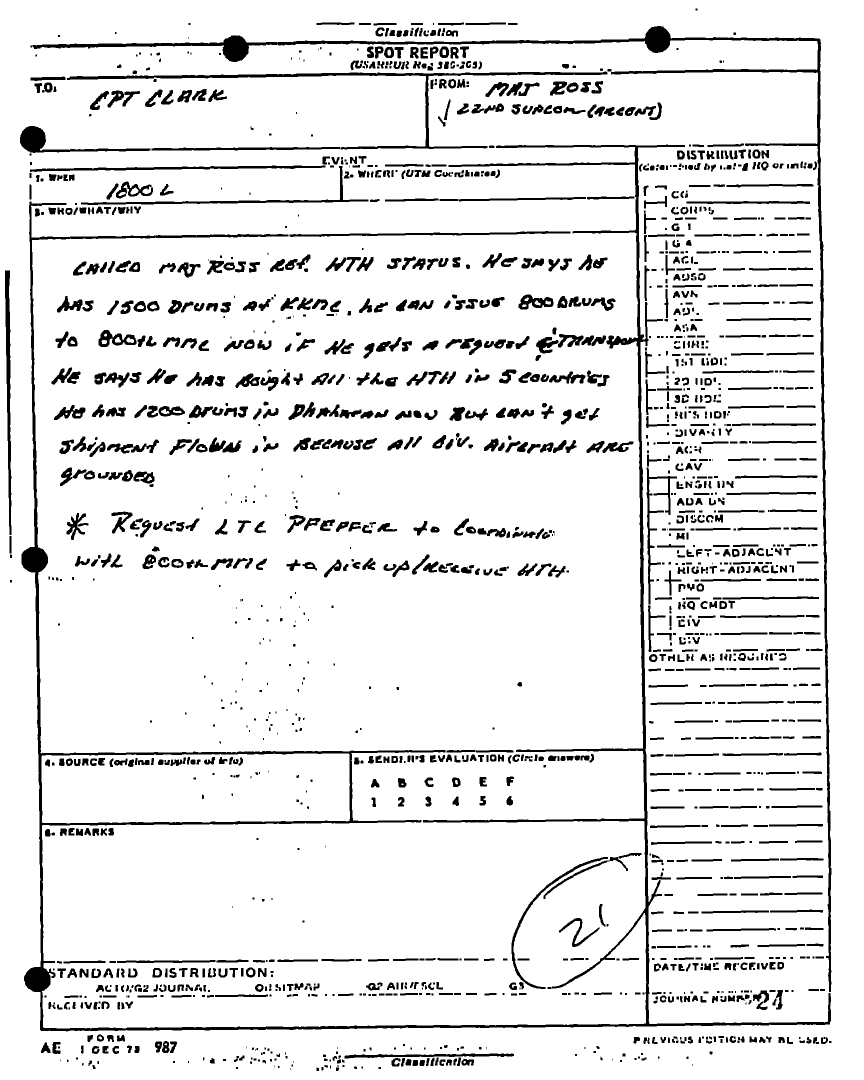 Classification
SPOT REPORT
(USAREUR Reg 380-205)
TO: CPT CLARK
FROM: MAJ ROSS
22ND SUPCOM (ARCENT)
EVENT
1. WHEN 1800 L
2. WHERE (UTM Coordinates)
3. WHO/WHAT/WHY
CALLED MAJ ROSS REF. HTH STATUS. HE SAYS HE
HAS 1500 DRUMS AT KKMC, HE CAN ISSUE 800 DRUMS
TO 800th MMC NOW IF HE GETS A REQUEST & TRANSPORT
HE SAYS HE HAS BOUGHT ALL THE HTH IN 5 COUNTRIES
HE HAS 1200 DRUMS IN DHAHARAN NOW BUT CAN'T GET
SHIPMENT FLOWN IN BECAUSE ALL DIV. AIRCRAFT ARE
GROUNDED
* REQUEST LTC PFEPFER TO COORDINATE
WITH 800th MMC TO PICK UP/RECEIVE HTH.
DISTRIBUTION
(determined by using HQ or units)
CG
CORPS
G 1
G 4
ACL
ADSO
AVN
ADL
ASA
CHRE
1ST BDE
2D BDE
3D BDE
RES BDE
DIVARTY
ACR
CAV
ENGR BN
ADA BN
DISCOM
MI
LEFT-ADJACENT
RIGHT-ADJACENT
PMO
HQ CMDT
DIV
DIV
OTHER AS REQUIRED
4. SOURCE (original supplier of info)
5. SENDER'S EVALUATION (Circle answers)
A B C D E F
1 2 3 4 5 6
6. REMARKS
21
STANDARD DISTRIBUTION:
ACTO/G2 JOURNAL G2 AIR/ESCL G3
RECEIVED BY
DATE/TIME RECEIVED
JOURNAL NUMBER 24
AE FORM 1 DEC 73 987
PREVIOUS EDITION MAY BE USED.
Classification